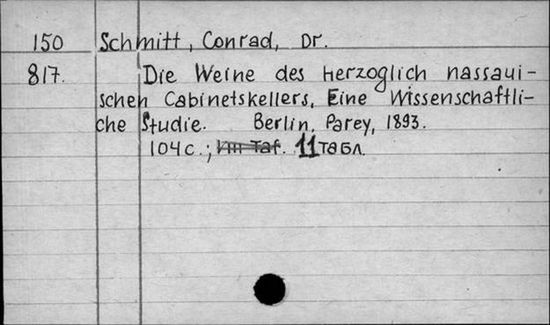 150 Schmitt, Conrad, Dr.
817. Die Weine des Herzoglich nassaui-
schen Cabinetskellers, Eine Wissenschaftli-
che Studie. Berlin, Parey, 1893.
104 с.; VIII Taf. 11 табл.